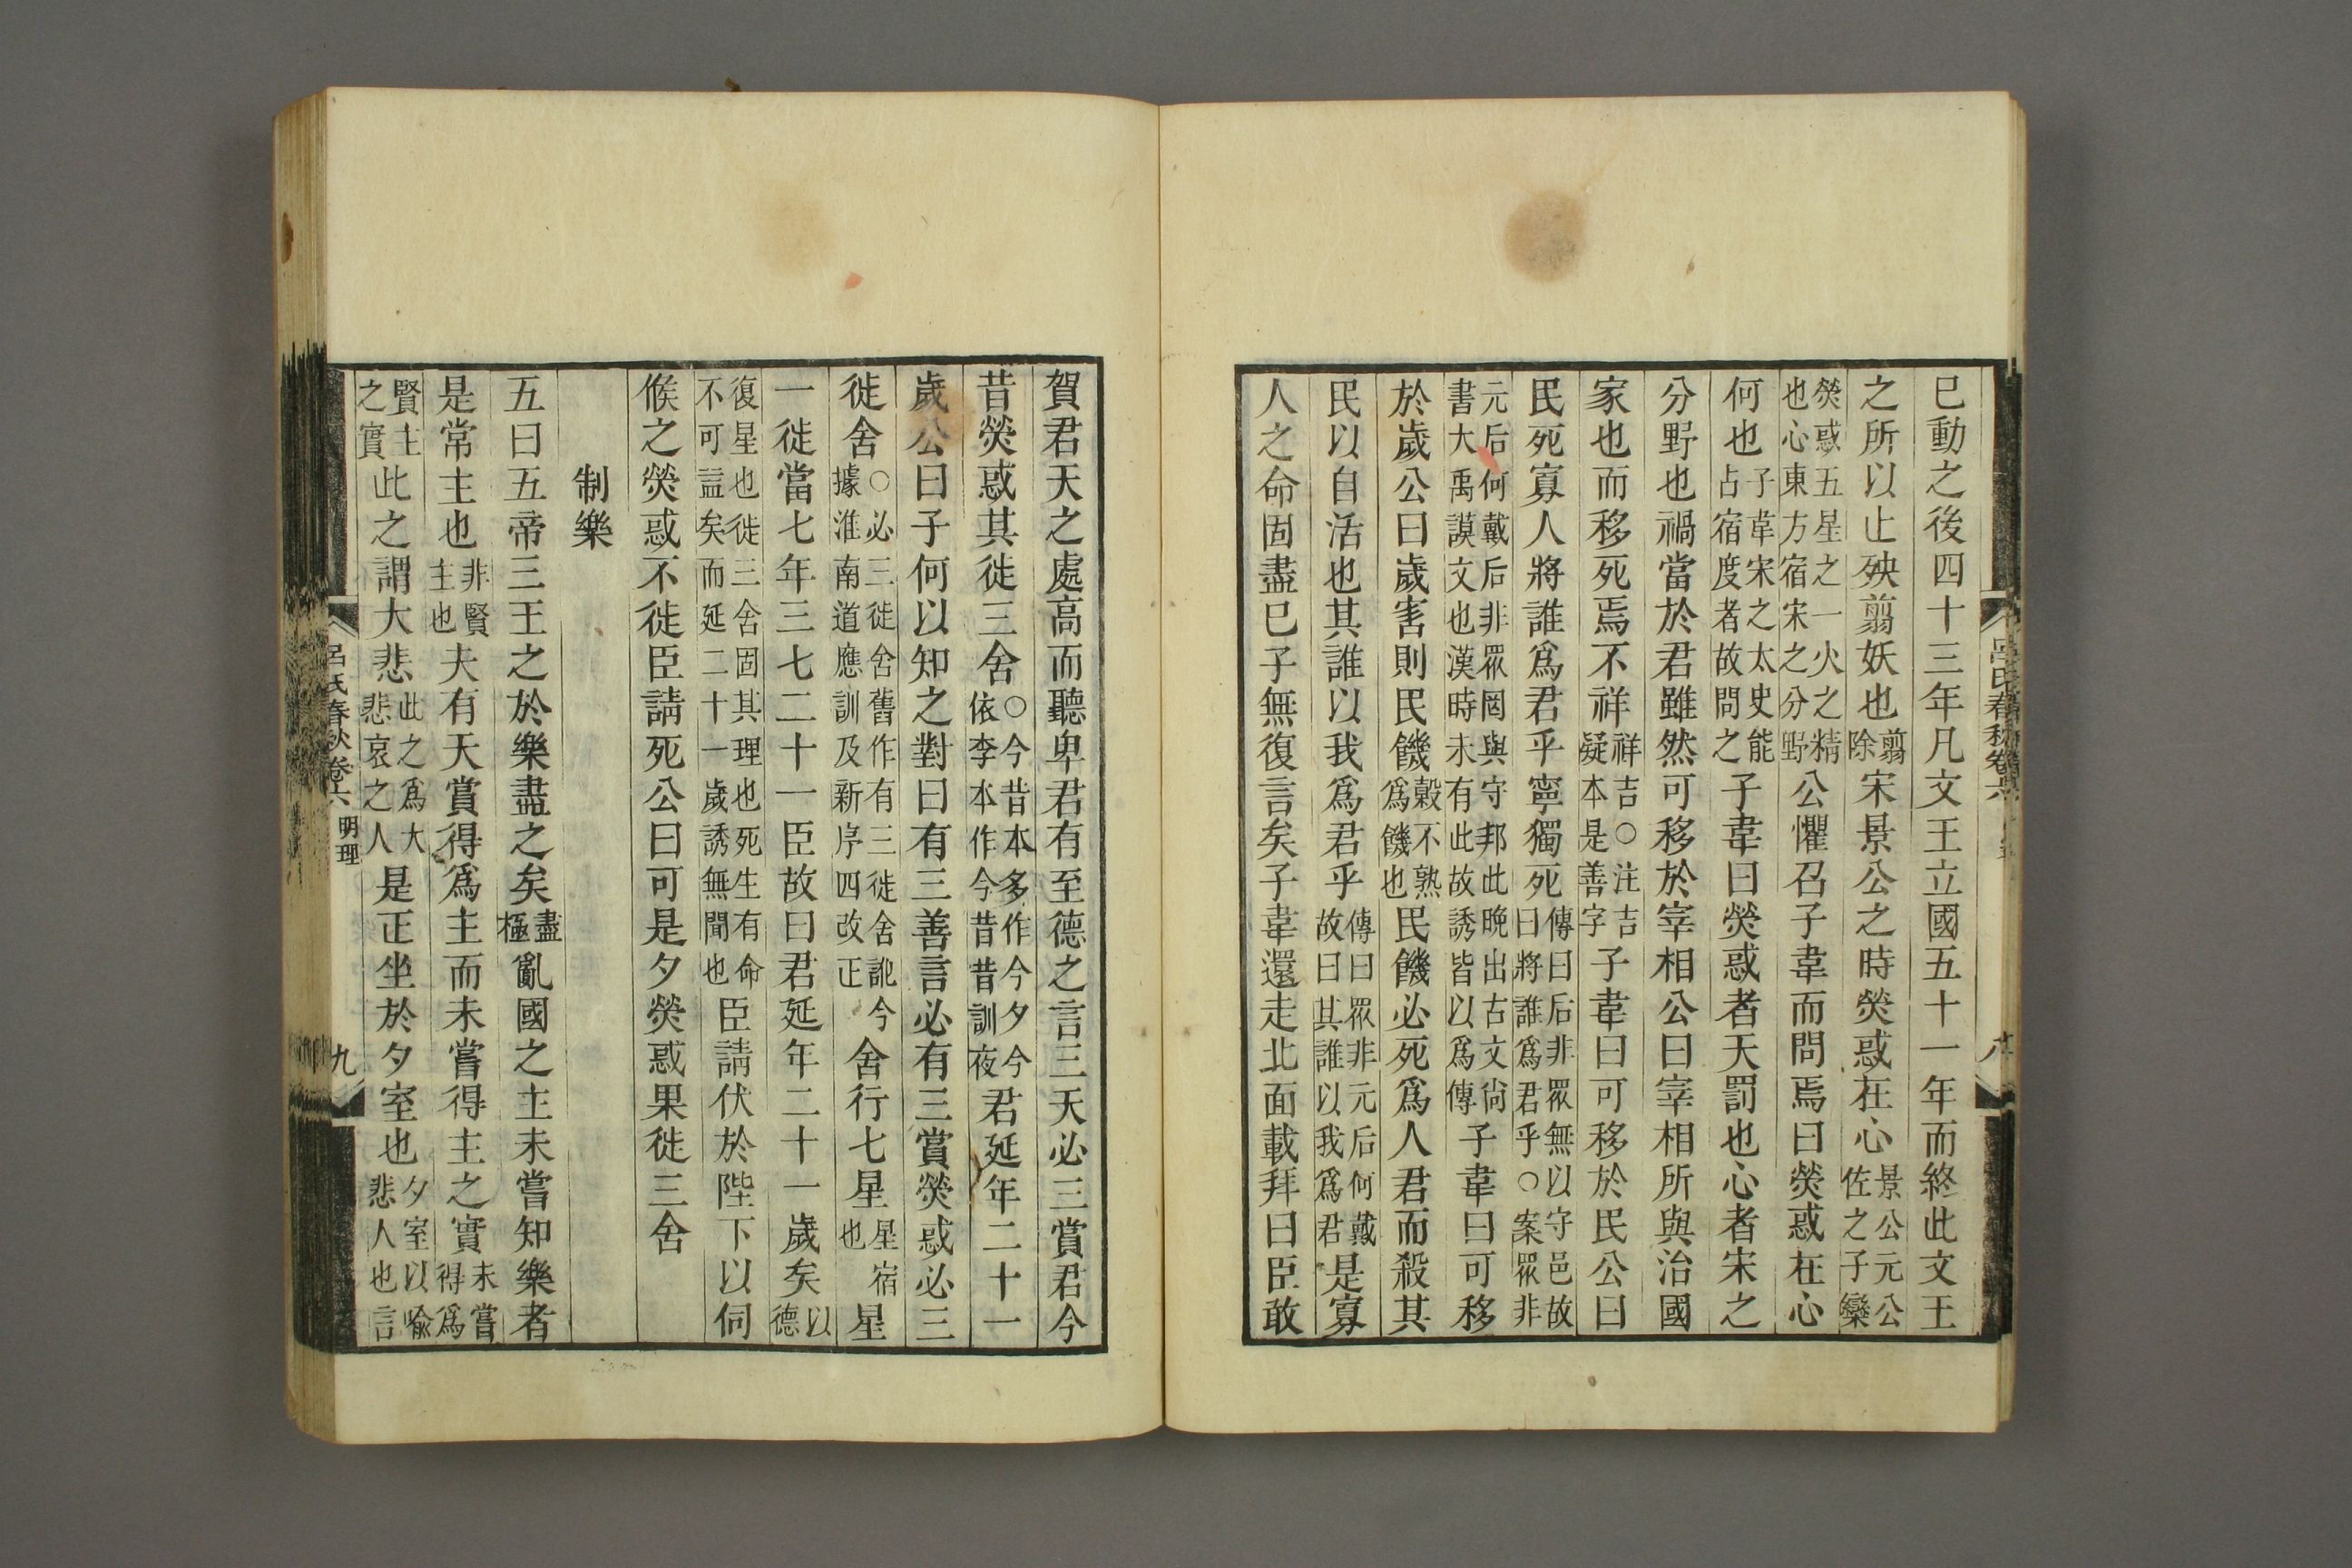 已動之後四十三年凡文王立國五十一年而終此文王
之所以止殃翦妖也翦除宋景公之時熒惑在心景公元公佐之子欒
熒惑五星之一火之精也心東方宿宋之分野公懼召子韋而問焉曰熒惑在心
何也子韋宋之太史能占宿度者故問之子韋曰熒惑者天罰也心者宋之
分野也禍當於君雖然可移於宰相公曰宰相所與治國
家也而移死焉不祥祥吉○注吉疑本是善字子韋曰可移於民公曰
民死寡人將誰爲君乎寧獨死傳曰后非眾無以守邑故曰將誰爲君乎○案眾非
元后何戴后非眾罔與守邦此晚出古文尙書大禹謨文也漢時未有此故誘皆以爲傳子韋曰可移
於歲公曰歲害則民饑穀不熟爲饑也民饑必死爲人君而殺其
民以自活也其誰以我爲君乎傳曰眾非元后何戴故曰其誰以我爲君是寡
人之命固盡已子無復言矣子韋還走北面載拜曰臣敢
呂氏春秋卷六
八
賀君天之處高而聽卑君有至德之言三天必三賞君今
昔熒惑其徙三舍○今昔本多作今夕今依李本作今昔昔訓夜君延年二十一
歲公曰子何以知之對曰有三善言必有三賞熒惑必三
徙舍○必三徙舍舊作有三徙舍訛今據淮南道應訓及新序四改正舍行七星星宿也星
一徙當七年三七二十一臣故曰君延年二十一歲矣以德
復星也徙三舍固其理也死生有命不可益矣而延二十一歲誘無聞也臣請伏於陛下以伺
候之熒惑不徙臣請死公曰可是夕熒惑果徙三舍
制樂
五曰五帝三王之於樂盡之矣盡極亂國之主未嘗知樂者
是常主也非賢主也夫有天賞得爲主而未嘗得主之實未嘗得爲
賢主之實此之謂大悲此之爲大悲哀之人是正坐於夕室也夕室以喻悲人也言
呂氏春秋卷六 明理
九